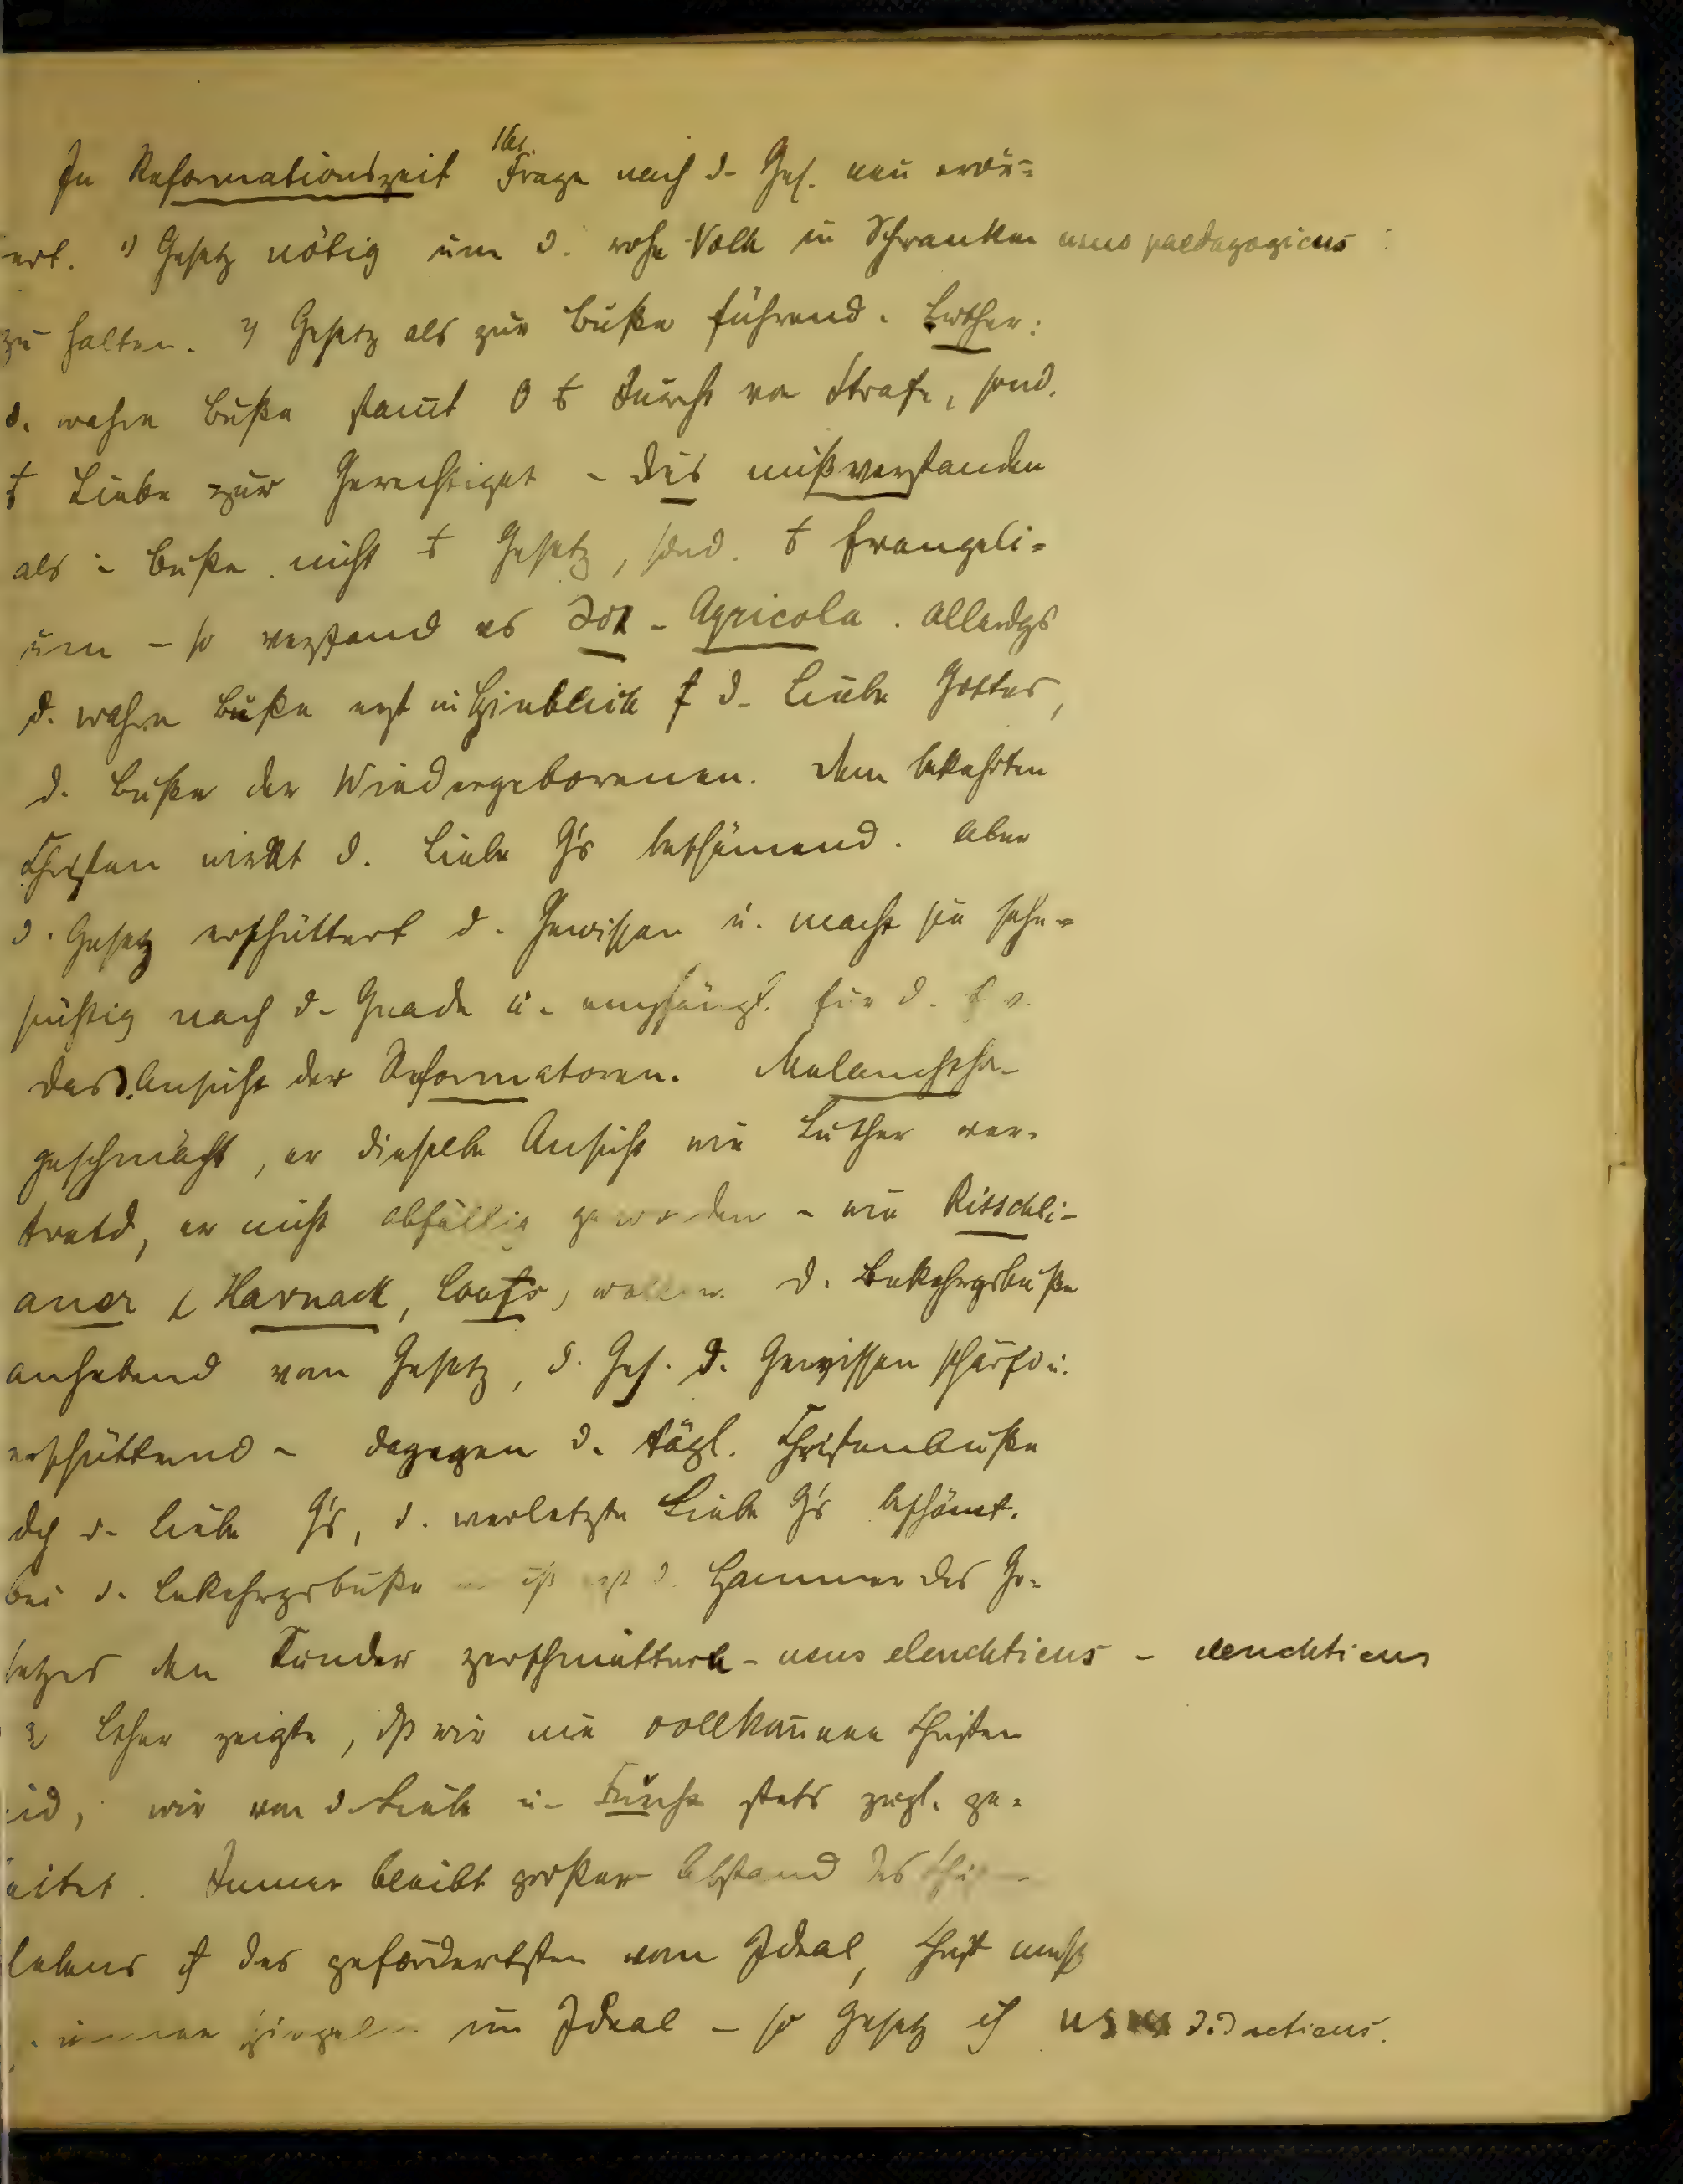 In Reformationszeit Frage nach d. Ges. neu erör=
ert. 1) Gesetz nötig um d. rohe Volk in Schranken usus paedagogicus
zu halten. 2) Gesetz als zur Buße führend. Luther:
d. wahre Buße stam̄t Furcht vor Strafe, sond.
Liebe zur Gerechtigkt – dies mißverstanden
als Buße nicht Gesetz, sond. Evangeli=
um – so verstand es Joh. Agricola. Allerdgs
d. wahre Buße erst im Hinblick d. Liebe Gottes,
d. Buße der Wiedergeborenen. Dem bekehrten
Christen wirkt d. Liebe G's beschämend. Aber
d. Gesetz erschüttert d. Gewissen u. macht sie sehn=
süchtig nach d. Gnade u. empfängl. für d. Ev.
das d. Ansicht der Reformatoren. Melanchth.
geschmäht, er dieselbe Ansicht wie Luther ver=
tretd, er nicht abfällig geworden – wie Ritschli=
aner (Harnack, Loofs) wollen. D. Bekehrgsbuße
anhebend vom Gesetz, d. Ges. d. Gewissen schärfd u.
erschütternd – dagegen d. tägl. Christenbuße
dch d. Liebe G's, d. verletzte Liebe G's beschämt.
bei d. Bekehrgsbuße ist d. Hammer des Ge=
setzes den Sünder zerschmettern – usus elenchticus – elenchticus
3) Luther zeigte, dß wir nie vollkom̄ene Christen
sid, wir von d. Liebe u. Furcht stets zugl. ge=
leitet. Immer bleibt großer Abstand des
lebens des gefördertsten vom Ideal, Christ muß
im Ideal – so Gesetz usus didacticus.